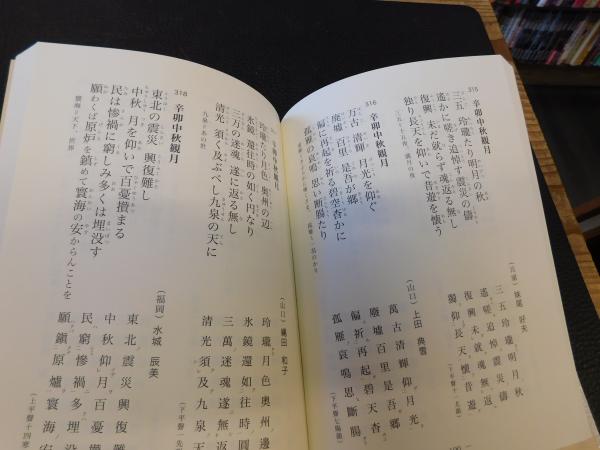 315 辛卯中秋観月
三五 玲瓏たり 明月の秋
遥かに嗟き追悼す 震災の儔
復興 未だ就らず 魂返る無し
独り長天を仰いで 昔遊を懐う
三五＝十五夜、満月の夜
(兵庫) 妹尾 好夫
三五玲瓏明月秋
遙嗟追悼震災儔
復興未就魂無返
獨仰長天懷昔遊
(下平聲十一尤韻)
316 辛卯中秋観月
万古 清輝 月光を仰ぐ
廃墟 百里 是吾が郷
偏に再起を祈る 碧空杳かに
孤雁の哀鳴 思い断腸たり
(山口) 上田 典雪
萬古清輝仰月光
廢墟百里是吾鄕
偏祈再起碧天杳
孤雁哀鳴思斷腸
(下平聲七陽韻)
辛卯中秋観月
玲瓏たり月色 奥州の辺
氷鏡 還往時の如く円なり
三万の迷魂 遂に返る無し
清光 須く及ぶべし九泉の天に
九泉＝あの世
(山口) 嶋田 和子
玲瓏月色奥州邊
氷鏡還如往時圓
三萬迷魂遂無返
清光須及九泉天
(下平聲一先韻
318 辛卯中秋観月
東北の震災 興復難し
中秋 月を仰いで百憂攅まる
民は惨禍に窮しみ多くは埋没す
願わくば原炉を鎮めて寰海の安からんことを
寰海＝天下、世界
(福岡) 水城 辰美
東北震災興復難
中秋仰月百憂攢
民窮慘禍多埋沒
願鎭原爐寰海安
(上平聲十四寒